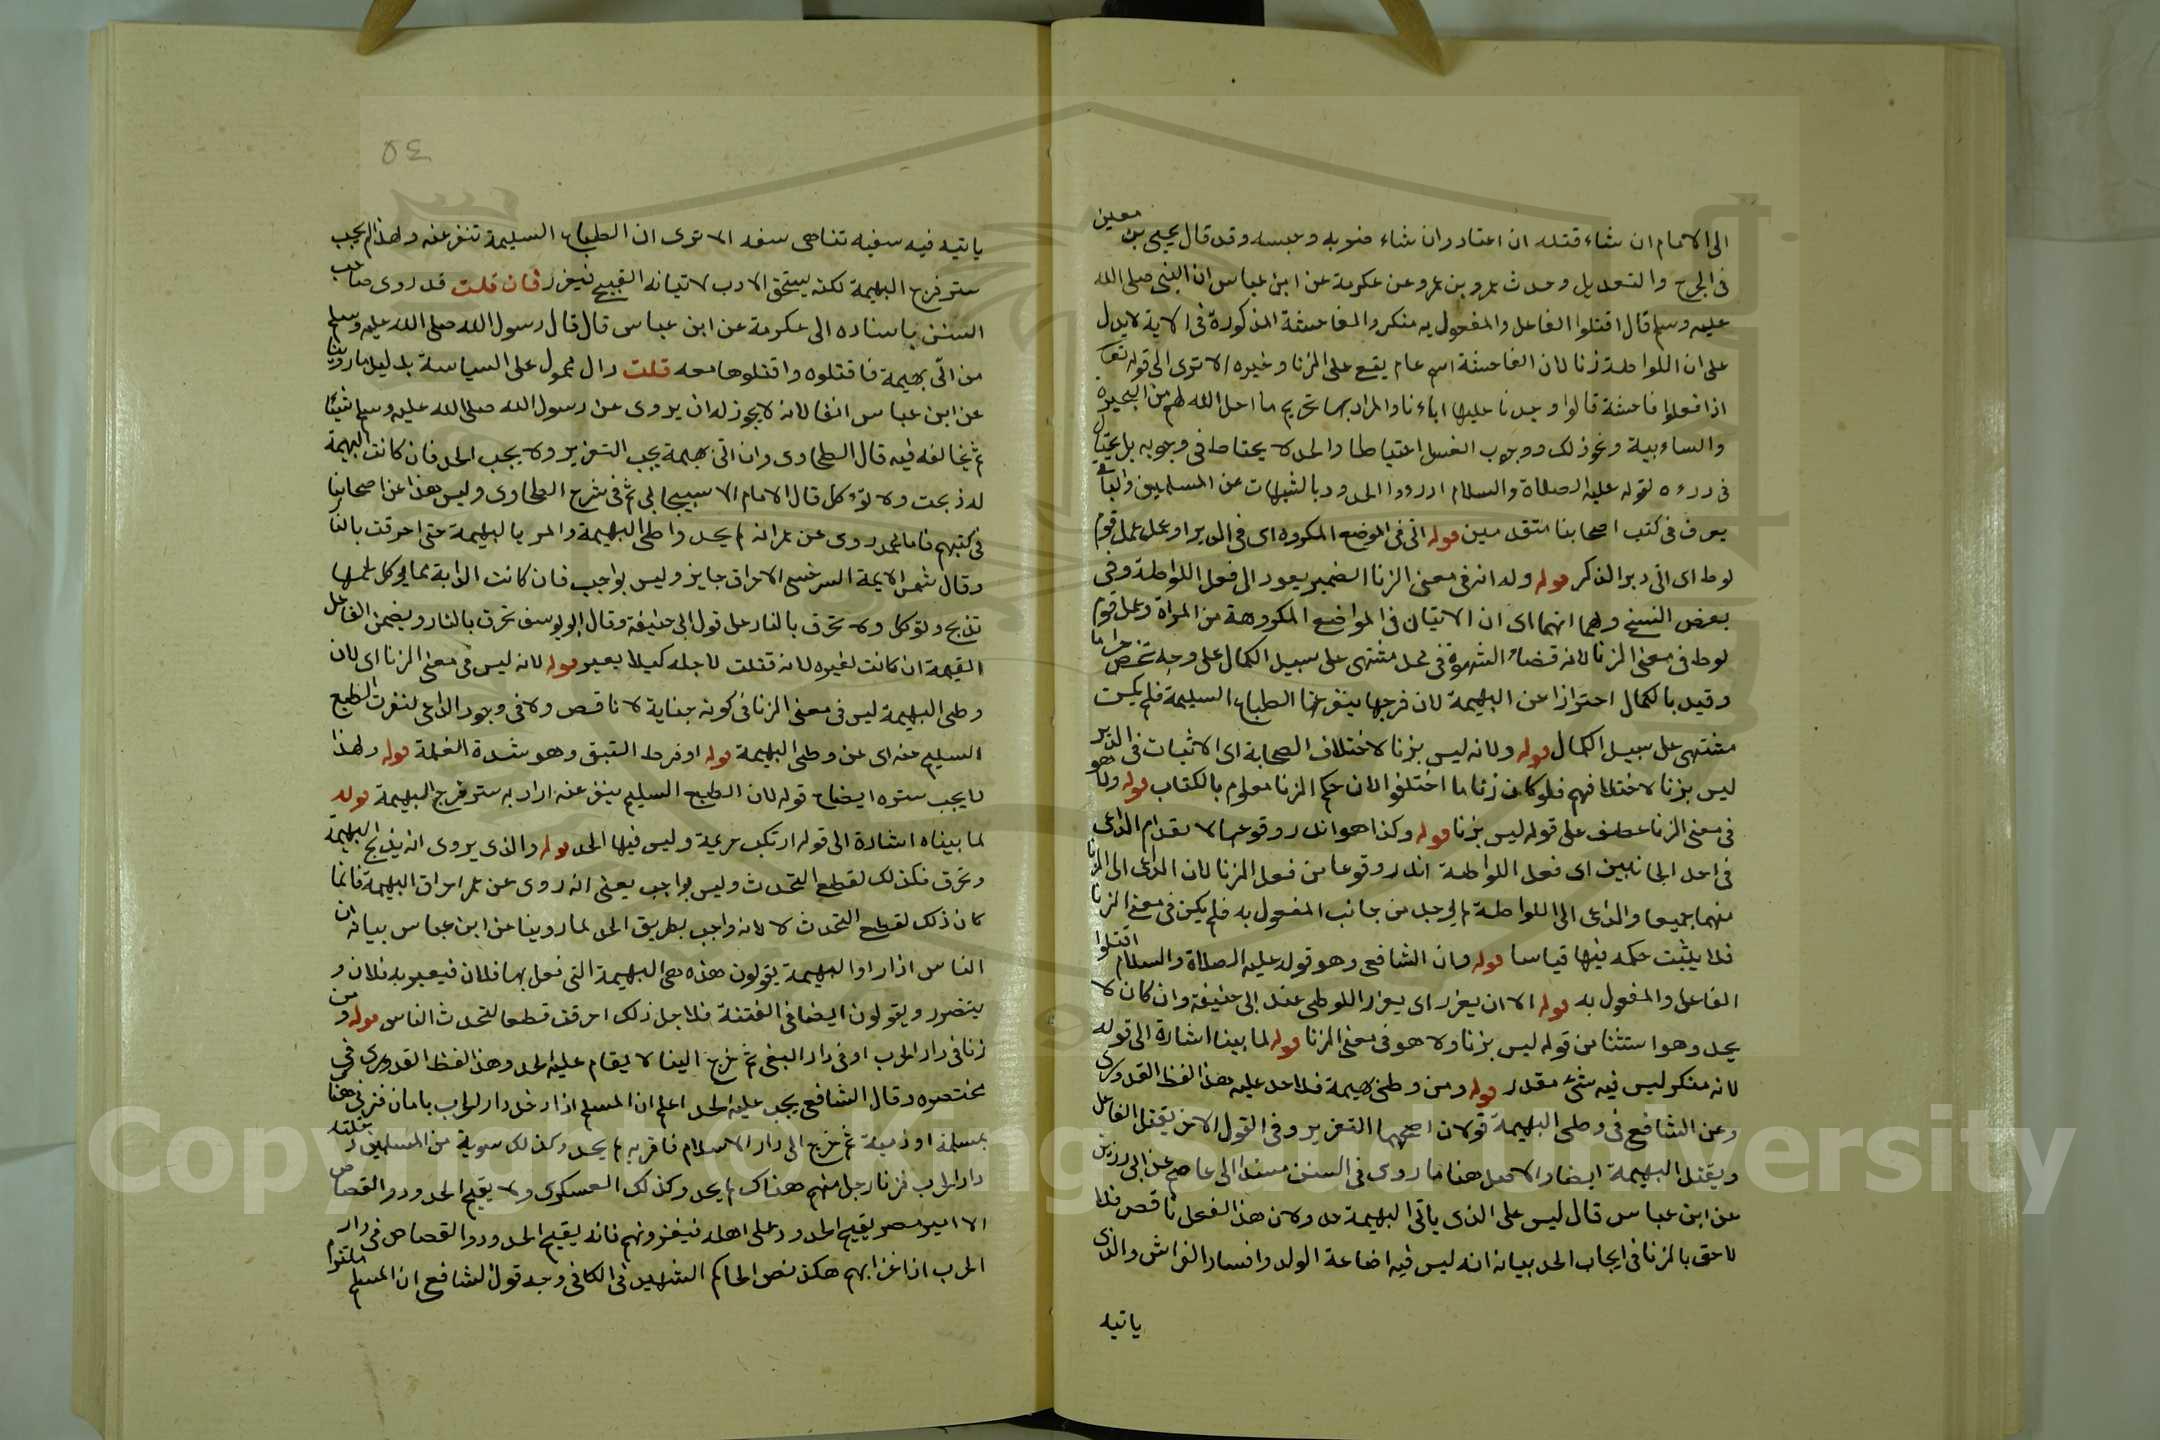 الى الامام ان شاء قتله ان اعتاد وان شاء ضربه وحبسه وقد قال يحيى بن معين
فى الجرح والتعديل وحدث عمرو بن عمرو عن عكرمة عن ابن عباس ان النبى صلى الله
عليه وسلم قال اقتلوا الفاعل والمفعول به منكر والفاحشة المذكورة فى الاية لا يدل
على ان اللواطة زنا لان الفاحشة اسم عام يقع على الزنا وغيره الا ترى الى قوله تعا
اذا فعلوا فاحشة قالوا وجدنا عليها اباءنا والمراد بها تحريم ما احل الله لهم من البحيرة
والساءيبة ونحو ذلك ووجوب الغسل احتياطا والحد لا يحتاط فى وجوبه بل يحتال
فى درءه لقوله عليه الصلاة والسلام ادرءوا الحدود بالشبهات عن المسلمين والباقى
يعرف فى كتب اصحابنا متقدمين قوله اتى فى الموضع المكروه اى فى الدبر او عمل عمل قوم
لوط اى اتى دبر الذكر قوله وله انه فى معنى الزنا الضمير يعود الى فعل اللواطة وفى
بعض النسخ ولهما انهما اى ان الاتيان فى المواضع المكروهة من المراة وعمل قوم
لوط فى معنى الزنا لانه قضاء الشهوة فى محل مشتهى على سبيل الكمال على وجه تمحض حراما
وقيد بالكمال احترازا عن البهيمة لان فرجها ينفر عنها الطباع السليمة فلم يكن
مشتهى على سبيل الكمال قوله ولانه ليس بزنا لاختلاف الصحابة اى الاتيان فى الدبر
ليس بزنا لاختلافهم فلو كان زنا ما اختلفوا لان حكم الزنا معلوم بالكتاب قوله ولا هو
فى معنى الزنا عطف على قوله ليس بزنا قوله وكذا هو اندر وقوعا لانعدام الداعى
فى احد الجانبين اى فعل اللواطة اندر وقوعا من فعل الزنا لان الداعى الى الزنا
منهما جميعا والداعى الى اللواطة لم يوجد من جانب المفعول به فلم يكن فى معنى الزنا
فلا يثبت حكمه فيها قياسا قوله وان الشافعى وهو قوله عليه الصلاة والسلام اقتلوا
الفاعل والمفعول به قوله الا ان يعزر اى يعزر اللوطى عند ابى حنيفة وان كان لا
يحد وهو استثنا من قوله ليس بزنا ولا هو فى معنى الزنا قوله لما بينا اشارة الى قوله
لانه منكر ليس فيه شئ مقدر قوله ومن وطئ بهيمة فلا حد عليه هذا لفظ القدورى
وعن الشافعى فى وطى البهيمة قولان اصحهما التعزير وفى القول الاخر يقتل الفاعل
ويقتل البهيمة ايضا والاصل هنا ما روى فى السنن مسندا الى عاصم عن ابى رزين
عن ابن عباس قال ليس على الذى ياتى البهيمة حد ولان هذا الفعل ناقص فلا
لاحق بالزنا فى ايجاب الحد بيانه انه ليس فيه اضاعة الولد وافساد الفراش والذى
ياتيه
٥٤
ياتيه فيه سفيه تناهى سفه الا ترى ان الطباع السليمة تنفر عنه ولهذا لم يجب
ستر فرج البهيمة لكنه يستحق الادب لاتيانه القبيح فيعزر فان قلت قد روى صاحب
السنن باسناده الى عكرمة عن ابن عباس قال قال رسول الله صلى الله عليه وسلم
من اتى بهيمة فاقتلوه واقتلوها معه قلت دال محمول على السياسة بدليل ما روينا
عن ابن عباس انفا لانه لا يجوز له ان يروى عن رسول الله صلى الله عليه وسلم شيئا
ثم يخالفه فيه قال الطحاوى وان اتى بهيمة يجب التعزير ولا يجب الحد فان كانت البهيمة
له ذبحت ولا تؤكل قال الامام الاسبيجابى ثم فى شرح الطحاوى وليس هذا عن اصحابنا
فى كتبهم فاما محمد روى عن عمر انه لم يحد واطى البهيمة وامر بالبهيمة حتى احرقت بالنار
وقال شمس الايمة السرخسى الاحراق جايز وليس بواجب فان كانت الدابة مما يوكل لحمها
تذبح وتؤكل ولا تحرق بالنار على قول ابى حنيفة وقال ابو يوسف تحرق بالنار ويضمن الفاعل
القيمة ان كانت لغيره لانه قتلت لاجله كيلا يعير قوله لانه ليس فى معنى الزنا اى لان
وطى البهيمة ليس فى معنى الزنا فى كونه جناية لانه ناقص ولا فى وجود الداعى لنفرت الطبع
السليم عنه اى عن وطى البهيمة قوله او فرط الشبق وهو شدة الغلمة قوله ولهذا
لا يجب ستره ايضاح قوله لان الطبع السليم ينفر عنه اراد به ستر فرج البهيمة قوله
لما بيناه اشارة الى قوله ارتكب جريمة وليس فيها الحد قوله والذى يروى انه يذبح البهيمة
وتحرق فكذلك لقطع التحدث وليس بواجب يعنى انه روى عن عمر احراق البهيمة فانما
كان ذلك لقطع التحدث لا لانه واجب بطريق الحد لما روينا عن ابن عباس بيانه ان
الناس اذا راوا البهيمة يقولون هذه هى البهيمة التى فعل بها فلان فيعير به فلان و
يتضرر ويقولون ايضا فى الفتنة فلاجل ذلك احرقت قطعا لتحدث الناس قوله ومن
زنا فى دار الحرب او فى دار البغى ثم خرج الينا لا يقام عليه الحد وهذا لفظ القدورى فى
مختصره وقال الشافعى يجب عليه الحد اعلم ان المسلم اذا دخل دار الحرب بامان فزنى هنا
بمسلمة او ذمية ثم خرج الى دار الاسلام فاقر به لم يحد وكذلك سرية من المسلمين دخلت
دار الحرب فزنا رجل منهم هناك لم يحد وكذلك العسكر ولا يقيم الحدود والقصاص
الا امير مصر يقيم الحدود على اهله فيغزو بهم فانه يقيم الحدود والقصاص فى دار
الحرب اذا غزا بهم هكذا نص الحاكم الشهيد فى الكافى وجه قول الشافعى ان المسلم ملتزم
Copyright © King Saud University